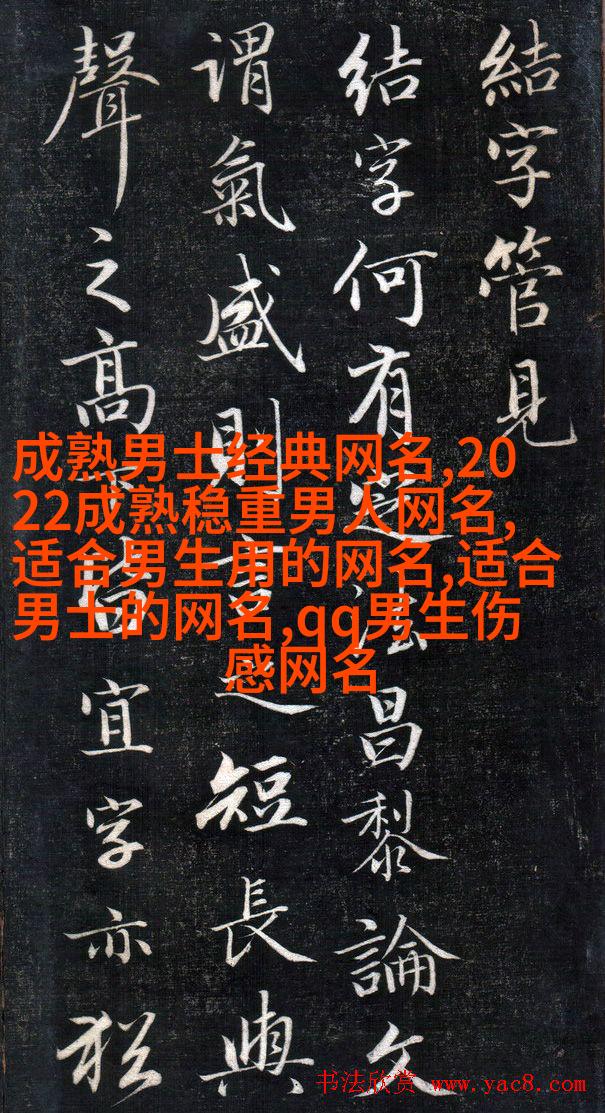 結字管見
结字何有定法昌黎論文
謂氣盛則言之短長與
聲之高宜字亦猶
成熟男士经典网名,20
22成熟稳重男人网名,
适合男生用的网名,适合
男士的网名,qq男生伤
感网名
书法欣赏 www.yac8.com